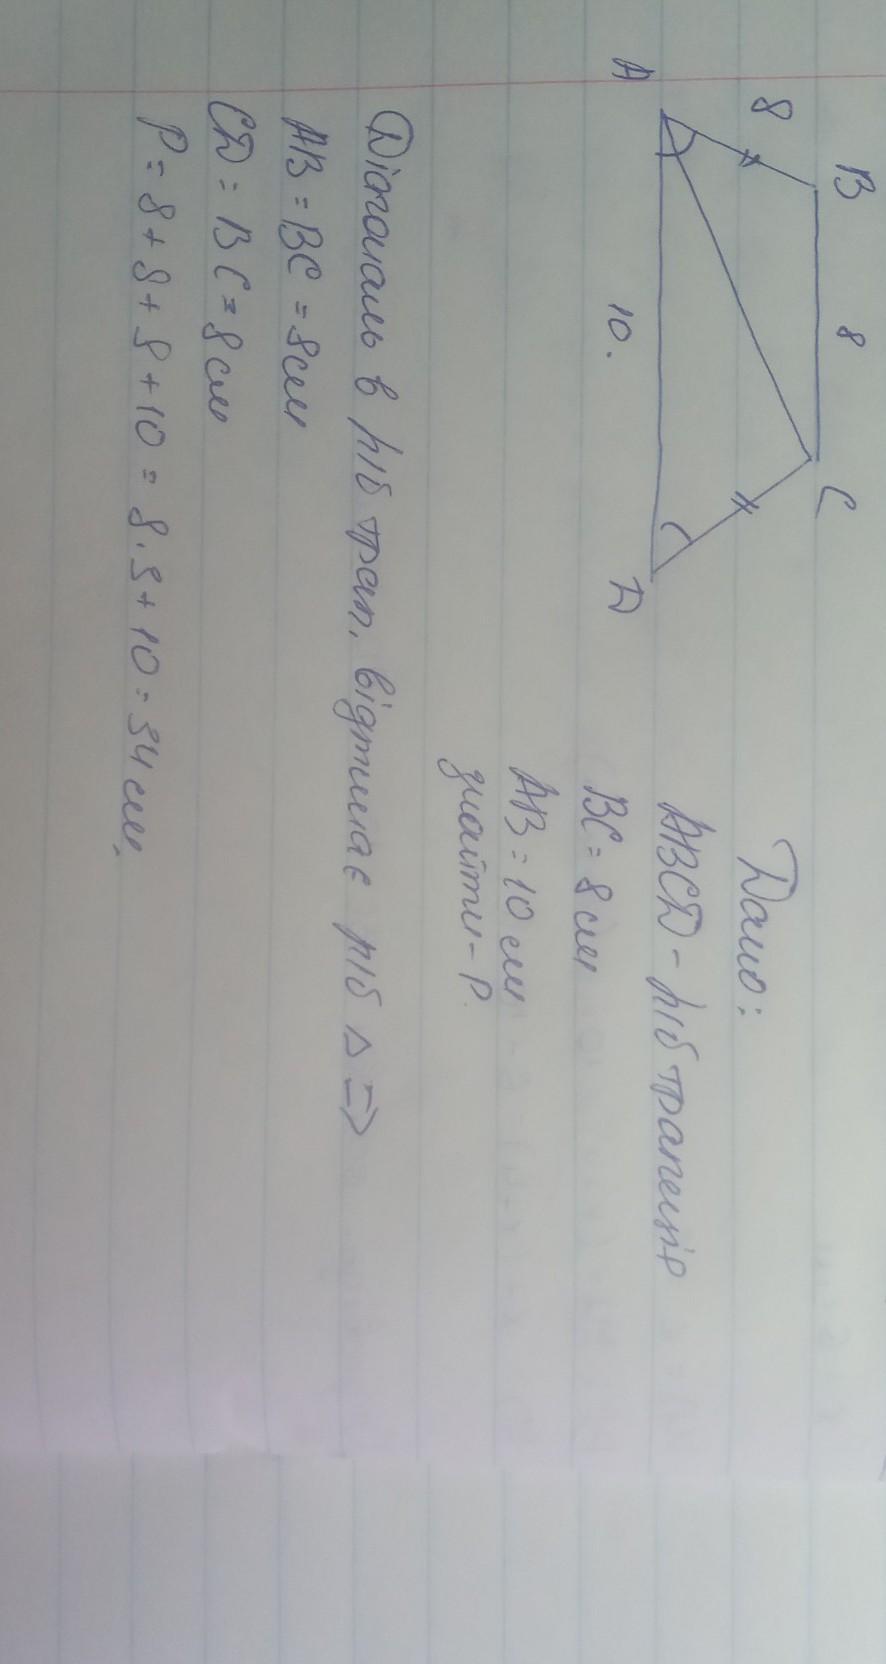 B 8 C
8
A 10. D
Дано:
ABCD - р/б трапеція
BC = 8 см
AB = 10 см
знайти - P
Діагональ в р/б трап. відтинає р/б △ =>
AB = BC = 8см
CD = BC = 8см
P = 8 + 8 + 8 + 10 = 8 · 3 + 10 = 34 см.